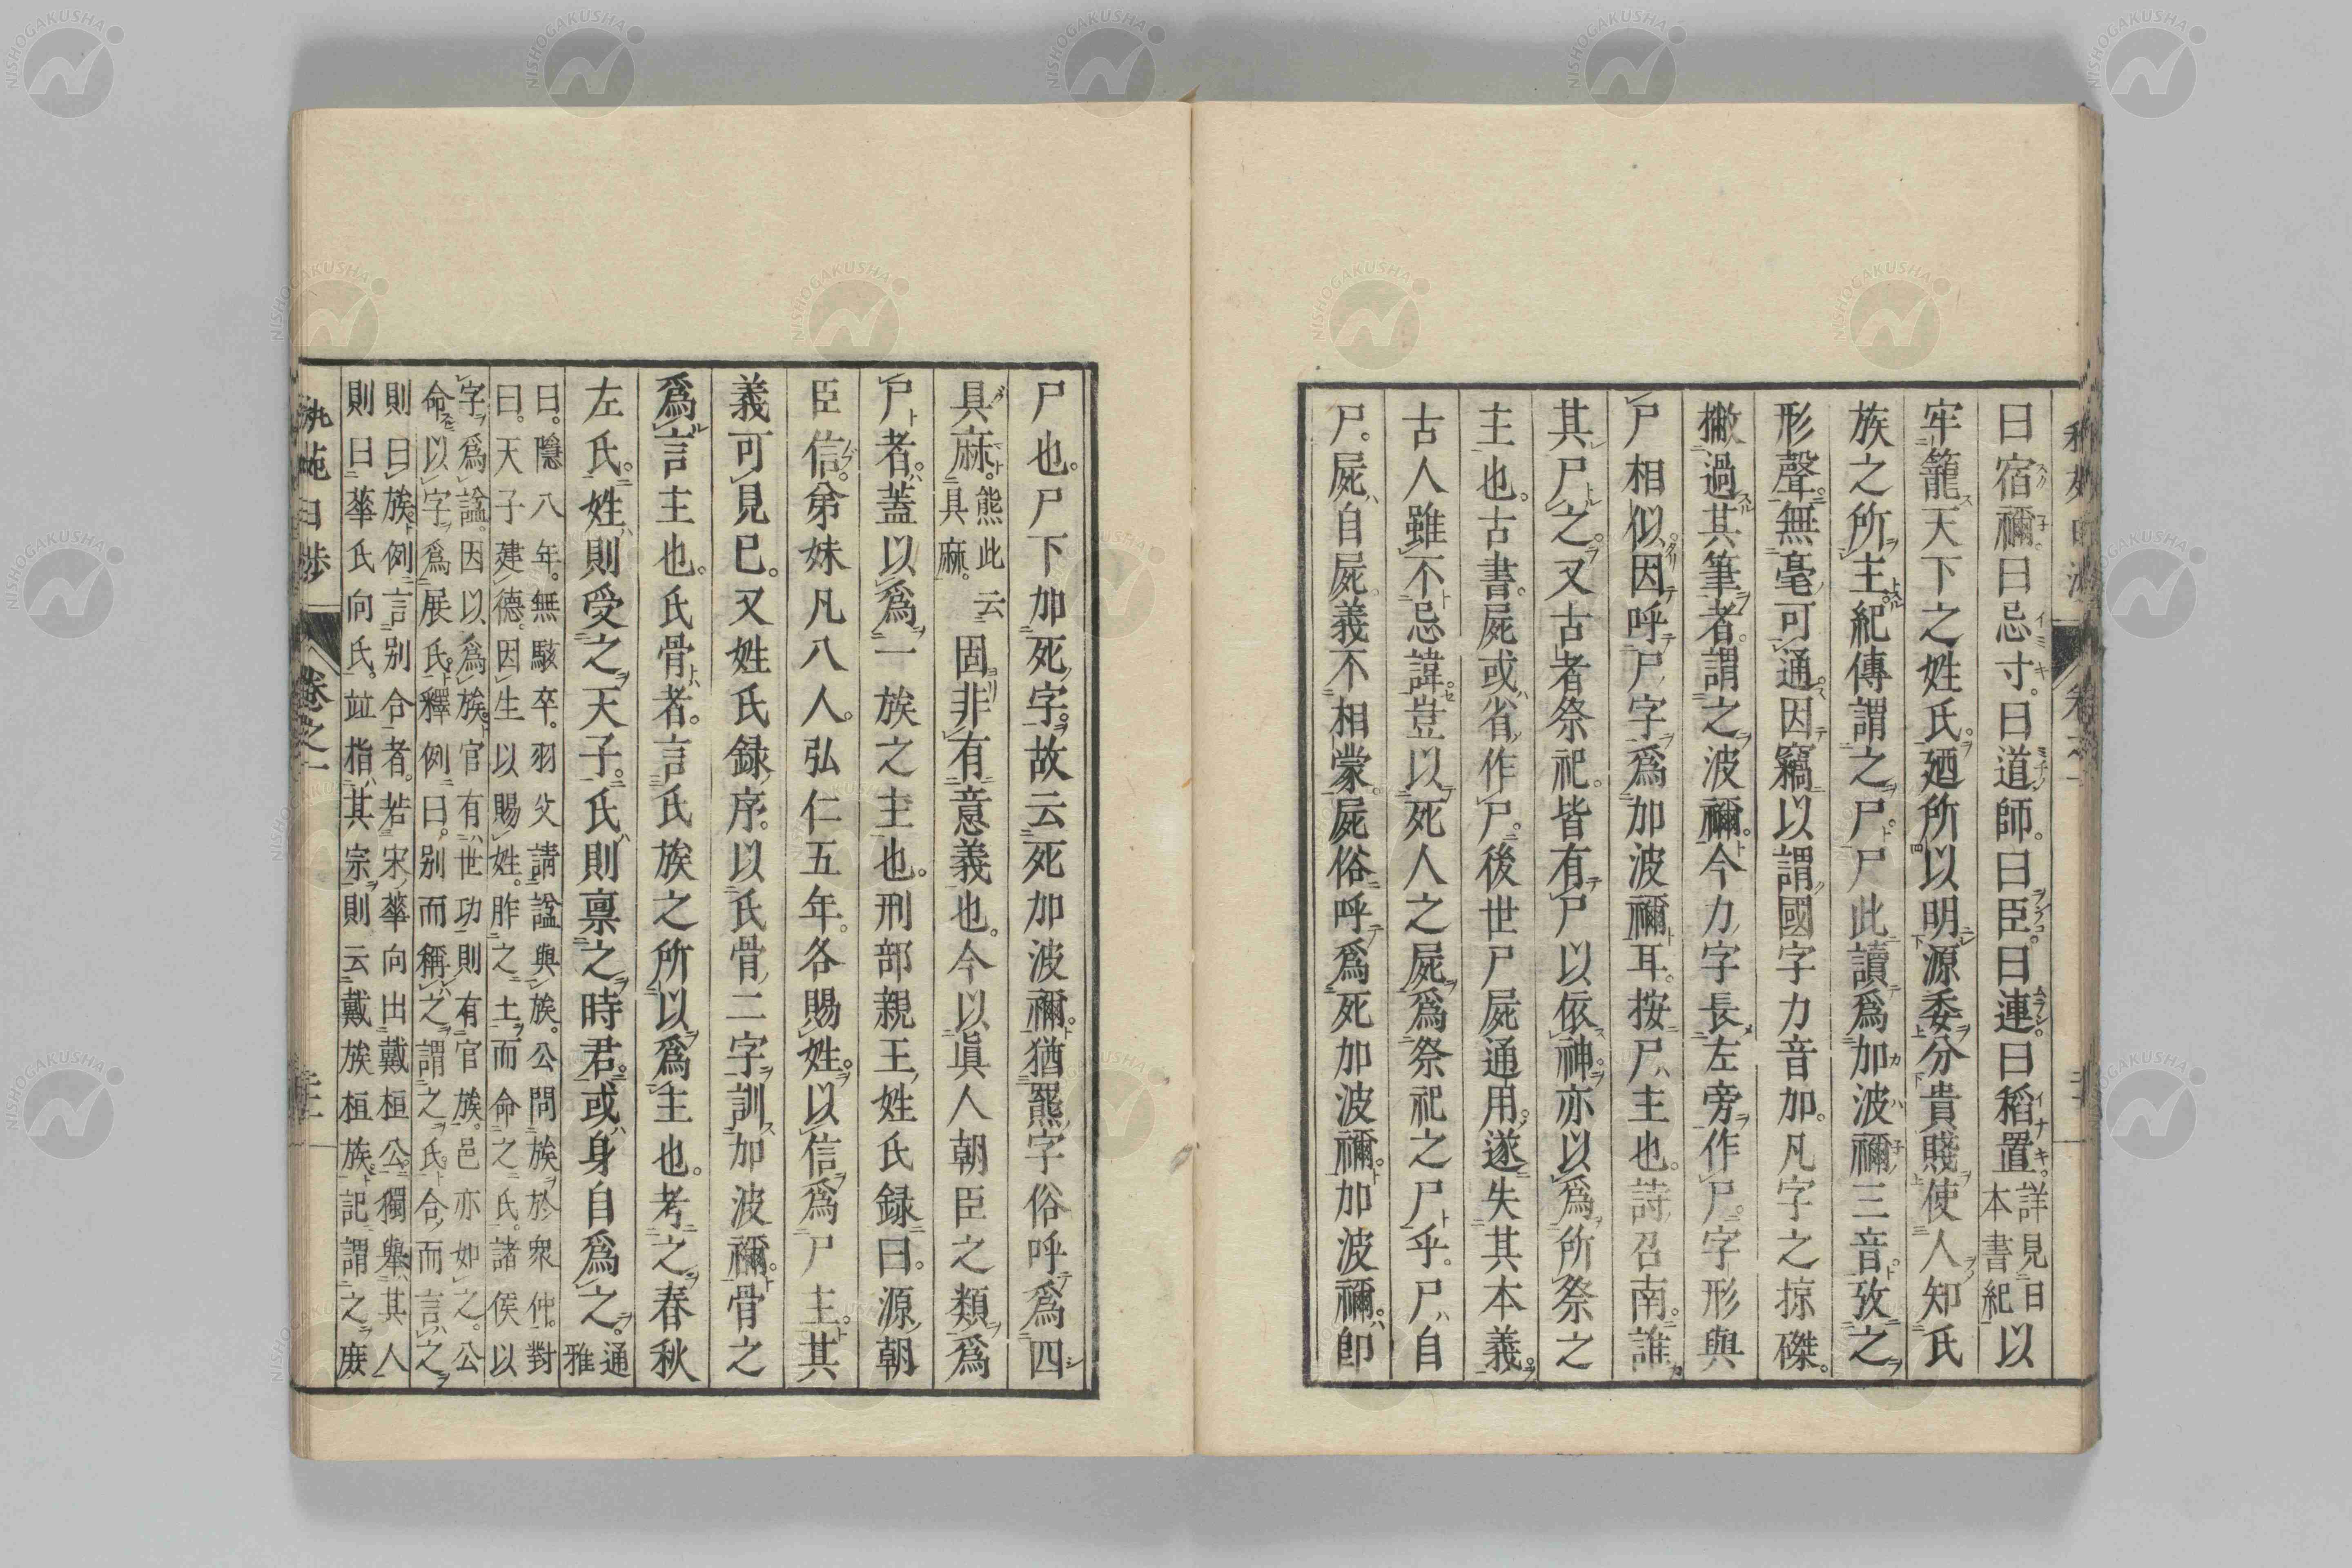 曰宿禰。曰忌寸。曰道師。曰臣。曰連。曰稻置。詳見日本書紀以
牢籠天下之姓氏。廼所以明源委分貴賤使人知氏
族之所主。紀傳謂之尸。尸此讀爲加波禰三音。攷之
形聲。無毫可通。因竊以謂國字力音加。凡字之掠磔。
撇過其筆者。謂之波禰。今力字長左旁作尸。字形與
尸相似。因呼尸字爲加波禰耳。按尸主也。詩召南。誰
其尸之。又古者祭祀。皆有尸以依神。亦以爲所祭之
主也。古書。屍或省作尸。後世尸屍通用。遂失其本義。
古人雖不忌諱。豈以死人之屍爲祭祀之尸乎。尸自
尸。屍自屍。義不相蒙。屍俗呼爲死加波禰。加波禰。卽
尸也。尸下加死字。故云死加波禰。猶羆字俗呼爲四
具麻。熊此云具麻。固非有意義也。今以眞人朝臣之類爲
尸者。蓋以爲一族之主也。刑部親王姓氏録曰。源朝
臣信。弟妹凡八人。弘仁五年。各賜姓。以信爲尸主。其
義可見巳。又姓氏録序。以氏骨二字訓加波禰。骨之
爲言主也。氏骨者。言氏族之所以爲主也。考之春秋
左氏。姓則受之天子。氏則禀之時君。或身自爲之。通雅
曰。隱八年。無駭卒。羽父請諡與族。公問族於衆仲。對
曰。天子建德。因生以賜姓。胙之土。而命之氏。諸侯以
字爲諡。因以爲族。官有世功。則有官族。邑亦如之。公
命以字爲展氏。釋例曰。別而稱之。謂之氏。合而言之
則曰族。例言別合者。若宋華向出戴桓公。獨舉其人
則曰華氏向氏。竝指其宗。則云戴族桓族。記謂之庶
卷之一